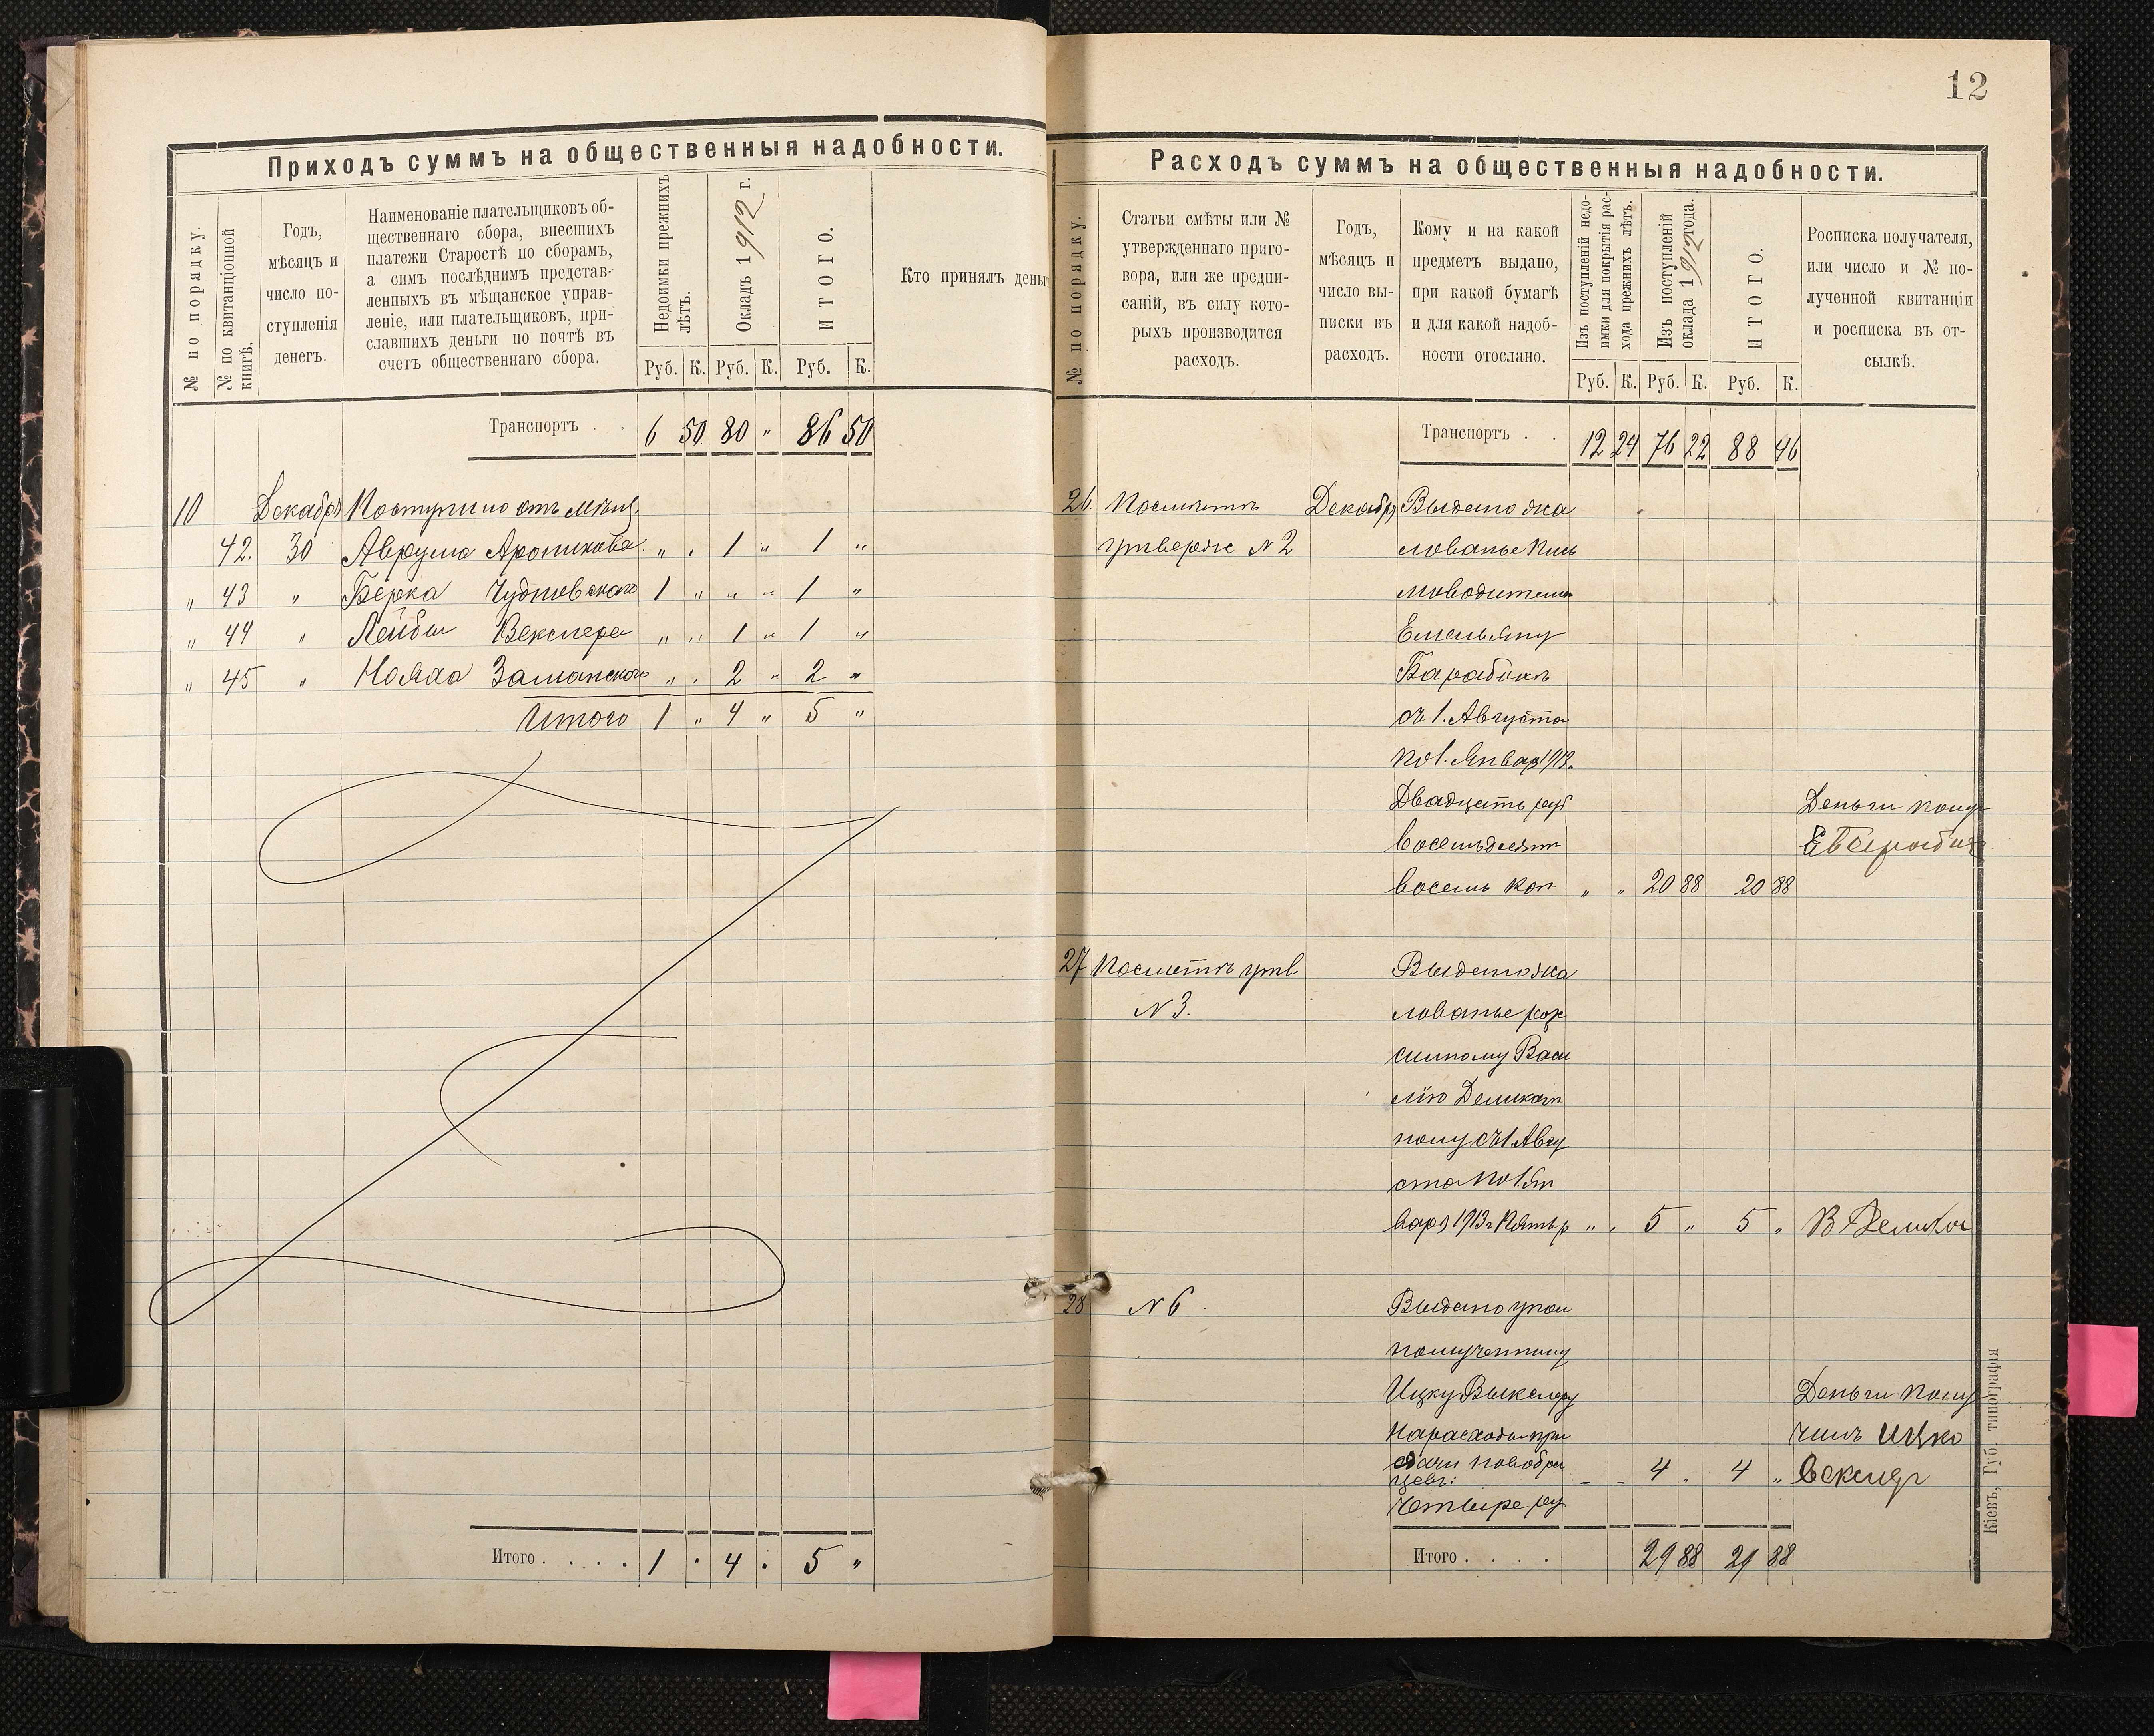 Приходъ суммъ на общественныя надобности.
№ по порядку.
№ по квитанціонной книгѣ.
Годъ,
мѣсяцъ и
число по-
ступленія
денегъ.
Наименованіе плательщиковъ об-
щественнаго сбора, внесшихъ
платежи Старостѣ по сборамъ,
а симъ послѣднимъ представ-
ленныхъ въ мѣщанское управ-
леніе, или плательщиковъ, при-
славшихъ деньги по почтѣ въ
счетъ общественнаго сбора.
Недоимки прежнихъ лѣтъ.
Окладъ 1912 г.
ИТОГО.
Кто принялъ деньг
Руб. К. Руб. К. Руб. К.
Транспортъ . . 6 50 80 " 86 50
10 Декабря Поступило отъ мѣщ.
42. 30 Аврума Ароникова " . 1 " 1 "
" 43 " Берка Чудновскаго 1 " " " 1 "
" 44 " Лейбы Векслера " " 1 " 1 "
" 45 " Нояха Заманскаго " . 2 " 2 "
Итого 1 " 4 " 5 "
Итого . . . . . 1 . 4 . 5 "
12
Расходъ суммъ на общественныя надобности.
№ по порядку.
Статьи смѣты или №
утвержденнаго приго-
вора, или же предпи-
саній, въ силу кото-
рыхъ производится
расходъ.
Годъ,
мѣсяцъ и
число вы-
писки въ
расходъ.
Кому и на какой
предметъ выдано,
при какой бумагѣ
и для какой надоб-
ности отослано.
Изъ поступленій недо-
имки для покрытія рас-
хода прежнихъ лѣтъ.
Изъ поступленій
оклада 1912 года.
ИТОГО.
Росписка получателя,
или число и № по-
лученной квитанціи
и росписка въ от-
сылкѣ.
Руб. К. Руб. К. Руб. К.
Транспортъ . . 12 24 76 22 88 46
26. По смѣтѣ Декабр Выдано жа
утвержд N 2 лованье Пись
моводителю
Емельяну
Барабашъ
съ 1. Августа
по 1. Январ 1913.
Двадцать руб Деньги полу
восемьдесят
восемь коп " " 20 88 20 88
27 По смѣтѣ утв. Выдано жа
N 3. лованье рог
сильному Васи
лію Деликат
ному съ 1. Авгу
ста по 1. Ян
варя 1913 г Пять р " . 5 " 5 "
28 N 6. Выдано упол
номученному
Ицку Векслеру Деньги полу
На расходы при чилъ Ицко
сдачи новобран
цевъ: - - 4 . 4 " Векслер
Четыре ру
Итого . . . . 29 88 29 88
Кіевъ, Губ. типографія